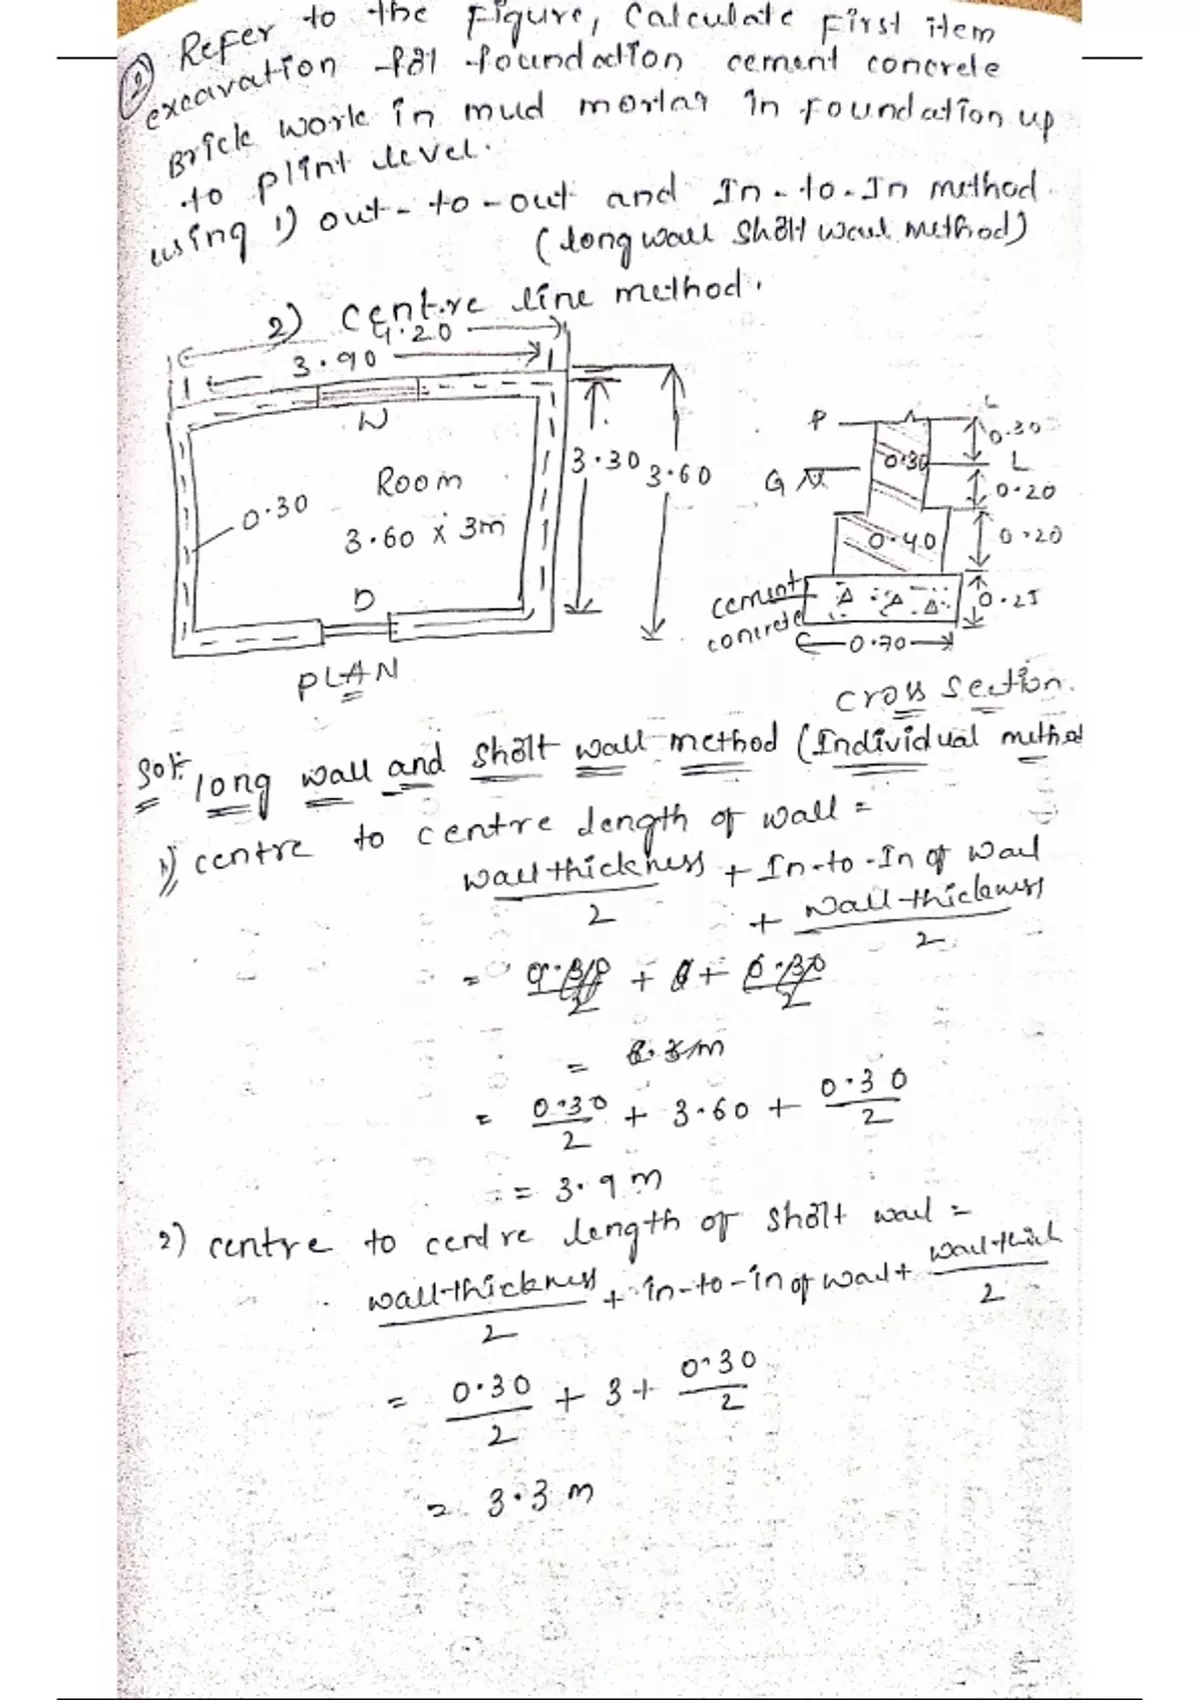 2) Refer to the Figure, Calculate First item
excavation for foundation cement concrete
Brick work in mud mortar in foundation up
to plint level.
using 1) out-to-out and In-to-In method.
(long wall short wall method)
2) Centre line method.
4.20
3.90
W
Room
3.60 x 3m
0.30
D
3.30
3.60
PLAN
P
0.30
L
0.30
G
0.20
0.40
0.20
cement
concrete
0.25
0.70
Cross Section.
Sol: long wall and short wall method (Individual method
1) centre to centre length of wall =
wall thickness / 2 + In-to-In of wall
+ wall thickness / 2
= 0.30 / 2 + 3.60 + 0.30 / 2
= 3.9 m
2) centre to centre length of short wall =
wall thickness / 2 + in-to-in of wall + wall thick / 2
= 0.30 / 2 + 3 + 0.30 / 2
= 3.3 m